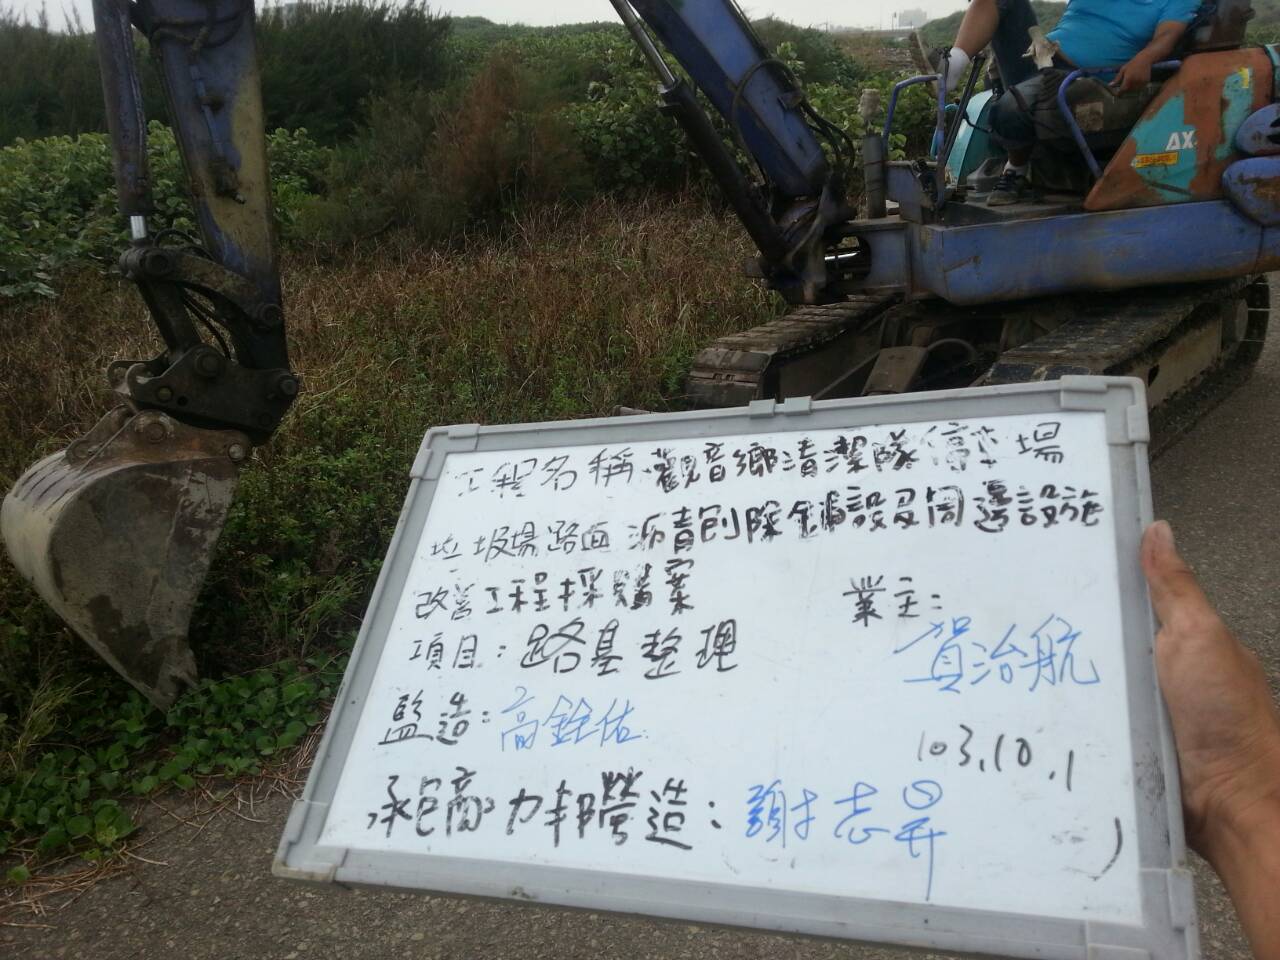 AX
工程名稱 觀音鄉清潔隊停車場
垃圾場路面瀝青刨除鋪設及周邊設施
改善工程採購案
項目：路基整理
業主：
賀治航
監造：高銓佑
103.10.1
承包商：力邦營造：謝志昇